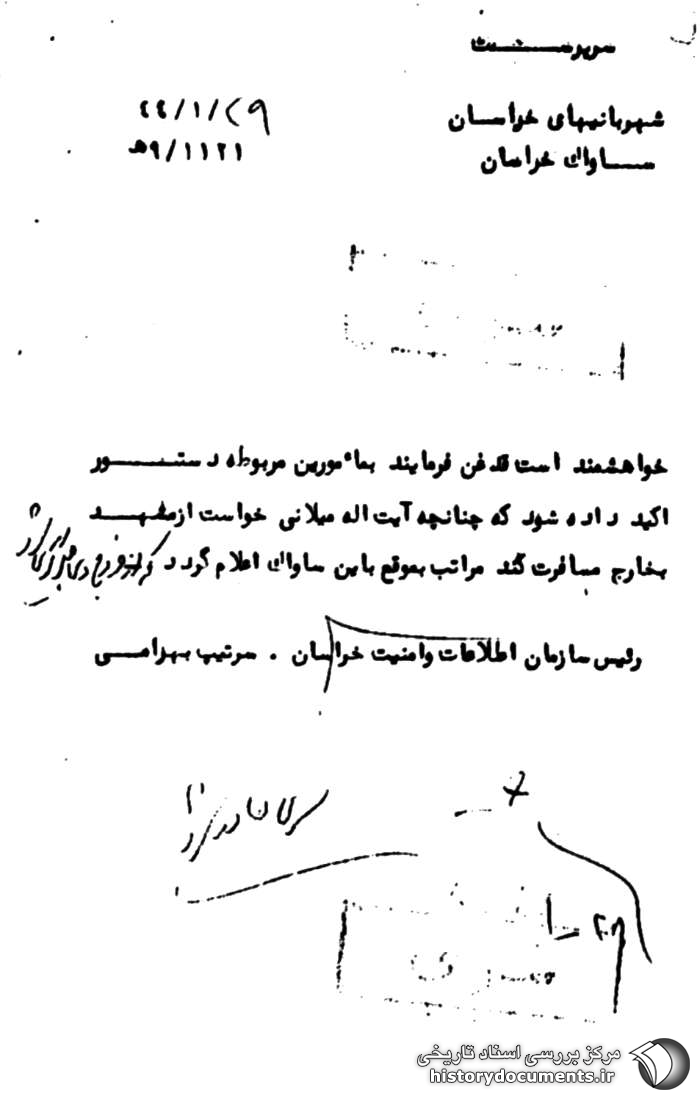 سرپرست
شهربانیهای خراسان
ساواک خراسان
۴۴/۱/۲۹
۹/۱۱۲۱ﻫ
خواهشمند است قدغن فرمایند بماٴمورین مربوطه دستور
اکید داده شود که چنانچه آیت اله میلانی خواست از مشهد
بخارج مسافرت کند مراتب بموقع باین ساواک اعلام گردد
رئیس سازمان اطلاعات وامنیت خراسان . سرتیپ بهرامی
سری
مرکز بررسی اسناد تاریخی
historydocuments.ir